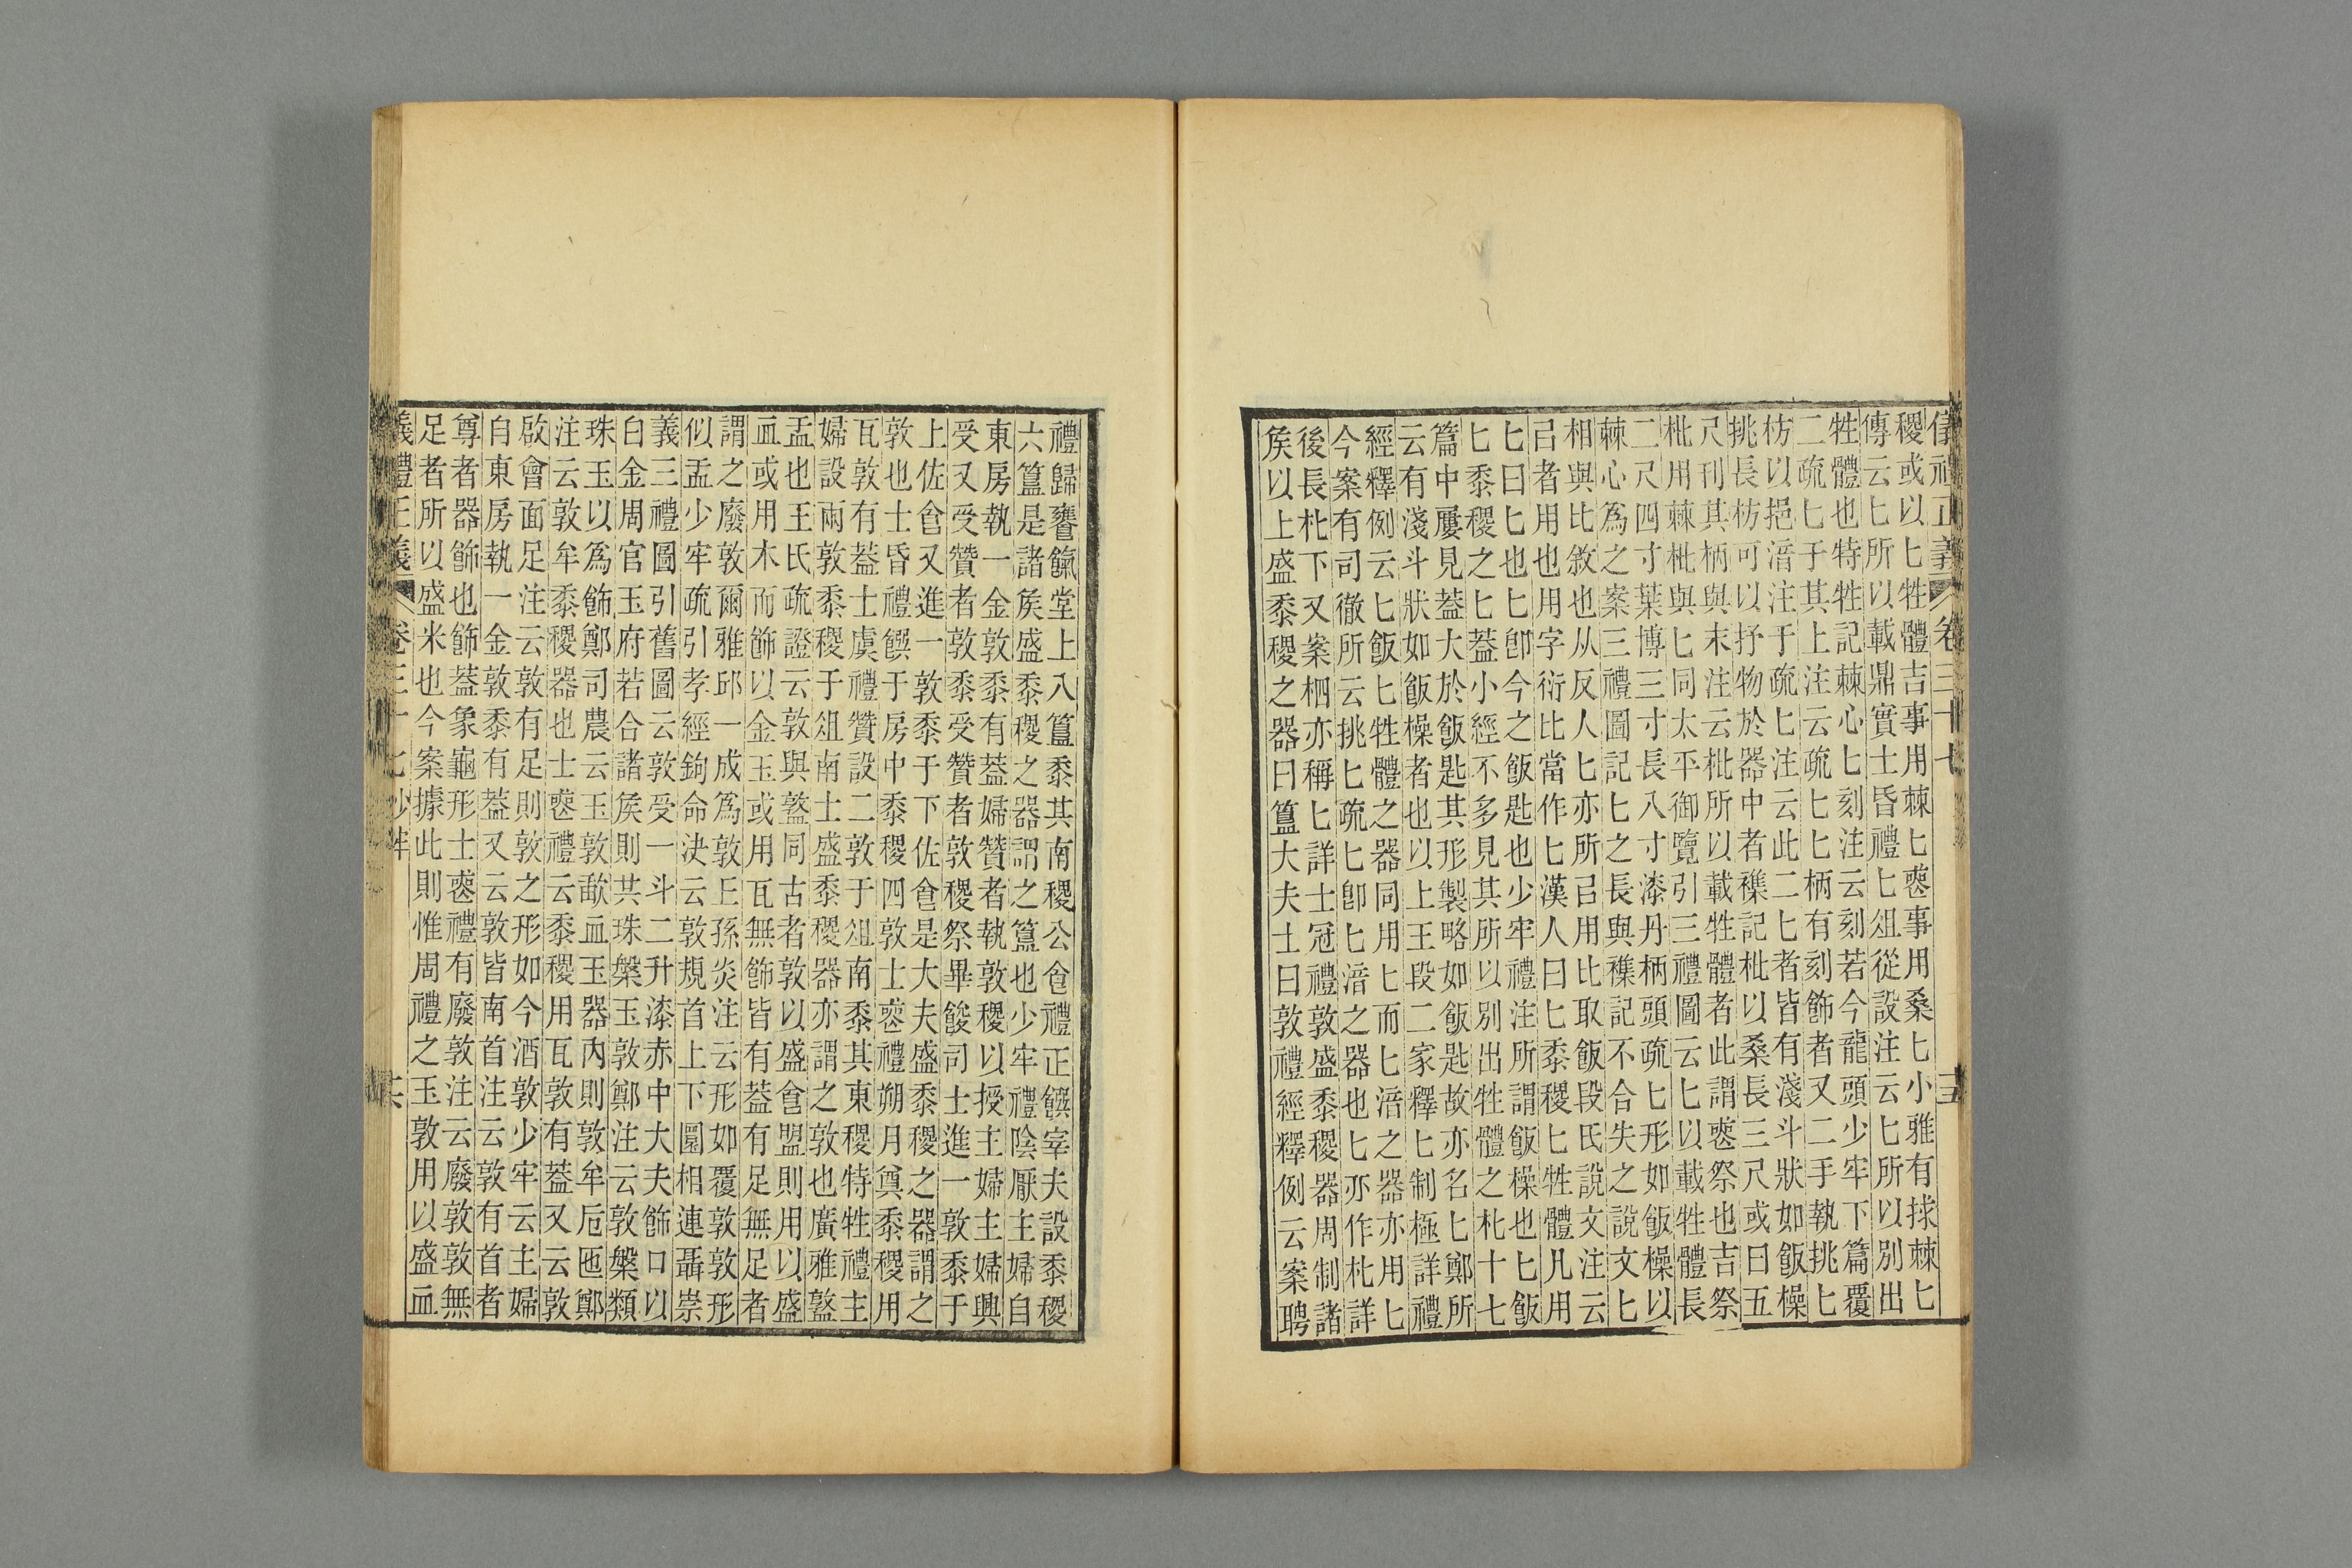 儀禮正義 卷三十七
稷或以匕牲體吉事用棘匕喪事用桑匕小雅有捄棘匕
傳云匕所以載鼎實士昏禮匕俎從設注云匕所以別出
牲體也特牲記棘心匕刻注云刻若今龍頭少牢下篇覆
二疏匕于其上注云疏匕匕柄有刻飾者又二手執挑匕
枋以挹湇注于疏匕注云此二匕者皆有淺斗狀如飯橾
挑長枋可以抒物於器中者襍記枇以桑長三尺或曰五
尺刊其柄與末注云枇所以載牲體者此謂喪祭也吉祭
枇用棘枇與匕同太平御覽引三禮圖云匕以載牲體長
二尺四寸葉博三寸長八寸漆丹柄頭疏匕形如飯橾以
棘心為之案三禮圖記匕之長與襍記不合失之說文匕
相與比敘也从反人匕亦所㠯用比取飯段氏說文注云
㠯者用也用字衍比當作匕漢人曰匕黍稷匕牲體凡用
匕曰匕也匕卽今之飯匙也少牢禮注所謂飯橾也匕飯
匕黍稷之匕蓋小經不多見其所以別出牲體之朼十七
篇中屢見蓋大於飯匙其形製略如飯匙故亦名匕鄭所
云有淺斗狀如飯橾者也以上王段二家釋匕制極詳禮
經釋例云匕飯匕牲體之器同用匕而匕湇之器亦用匕
今案有司徹所云挑匕疏匕卽匕湇之器也匕亦作朼詳
後長朼下又案柶亦稱匕詳士冠禮敦盛黍稷器周制諸
矦以上盛黍稷之器曰簋大夫士曰敦禮經釋例云案聘
禮歸饔餼堂上八簋黍其南稷公食禮正饌宰夫設黍稷
六簋是諸矦盛黍稷之器謂之簋也少牢禮陰厭主婦自
東房執一金敦黍有蓋婦贊者執敦稷以授主婦主婦興
受又受贊者敦黍受贊者敦稷祭畢餕司士進一敦黍于
上佐食又進一敦黍于下佐食是大夫盛黍稷之器謂之
敦也士昏禮饌于房中黍稷四敦士喪禮朔月奠黍稷用
瓦敦有蓋士虞禮贊設二敦于俎南黍其東稷特牲禮主
婦設兩敦黍稷于俎南士盛黍稷器亦謂之敦也廣雅
盂也王氏疏證云敦與同古者敦以盛食盟則用以盛
血或用木而飾以金玉或用瓦無飾皆有蓋有足無足者
謂之廢敦爾雅邱一成為敦王孫炎注云形如覆敦敦形
似盂少牢疏引孝經鉤命決云敦規首上下圜相連聶崇
義三禮圖引舊圖云敦受一斗二升漆赤中大夫飾口以
白金周官玉府若合諸矦則共珠槃玉敦鄭注云敦槃類
珠玉以為飾鄭司農云玉敦歃血玉器內則敦牟卮匜鄭
注云敦牟黍稷器也士喪禮云黍稷用瓦敦有蓋又云敦
啟會面足注云敦有足則敦之形如今酒敦少牢云主婦
自東房執一金敦黍有蓋又云敦皆南首注云敦有首者
尊者器飾也飾蓋象龜形士喪禮有廢敦注云廢敦敦無
足者所以盛米也今案據此則惟周禮之玉敦用以盛血
義禮正義 卷三十七